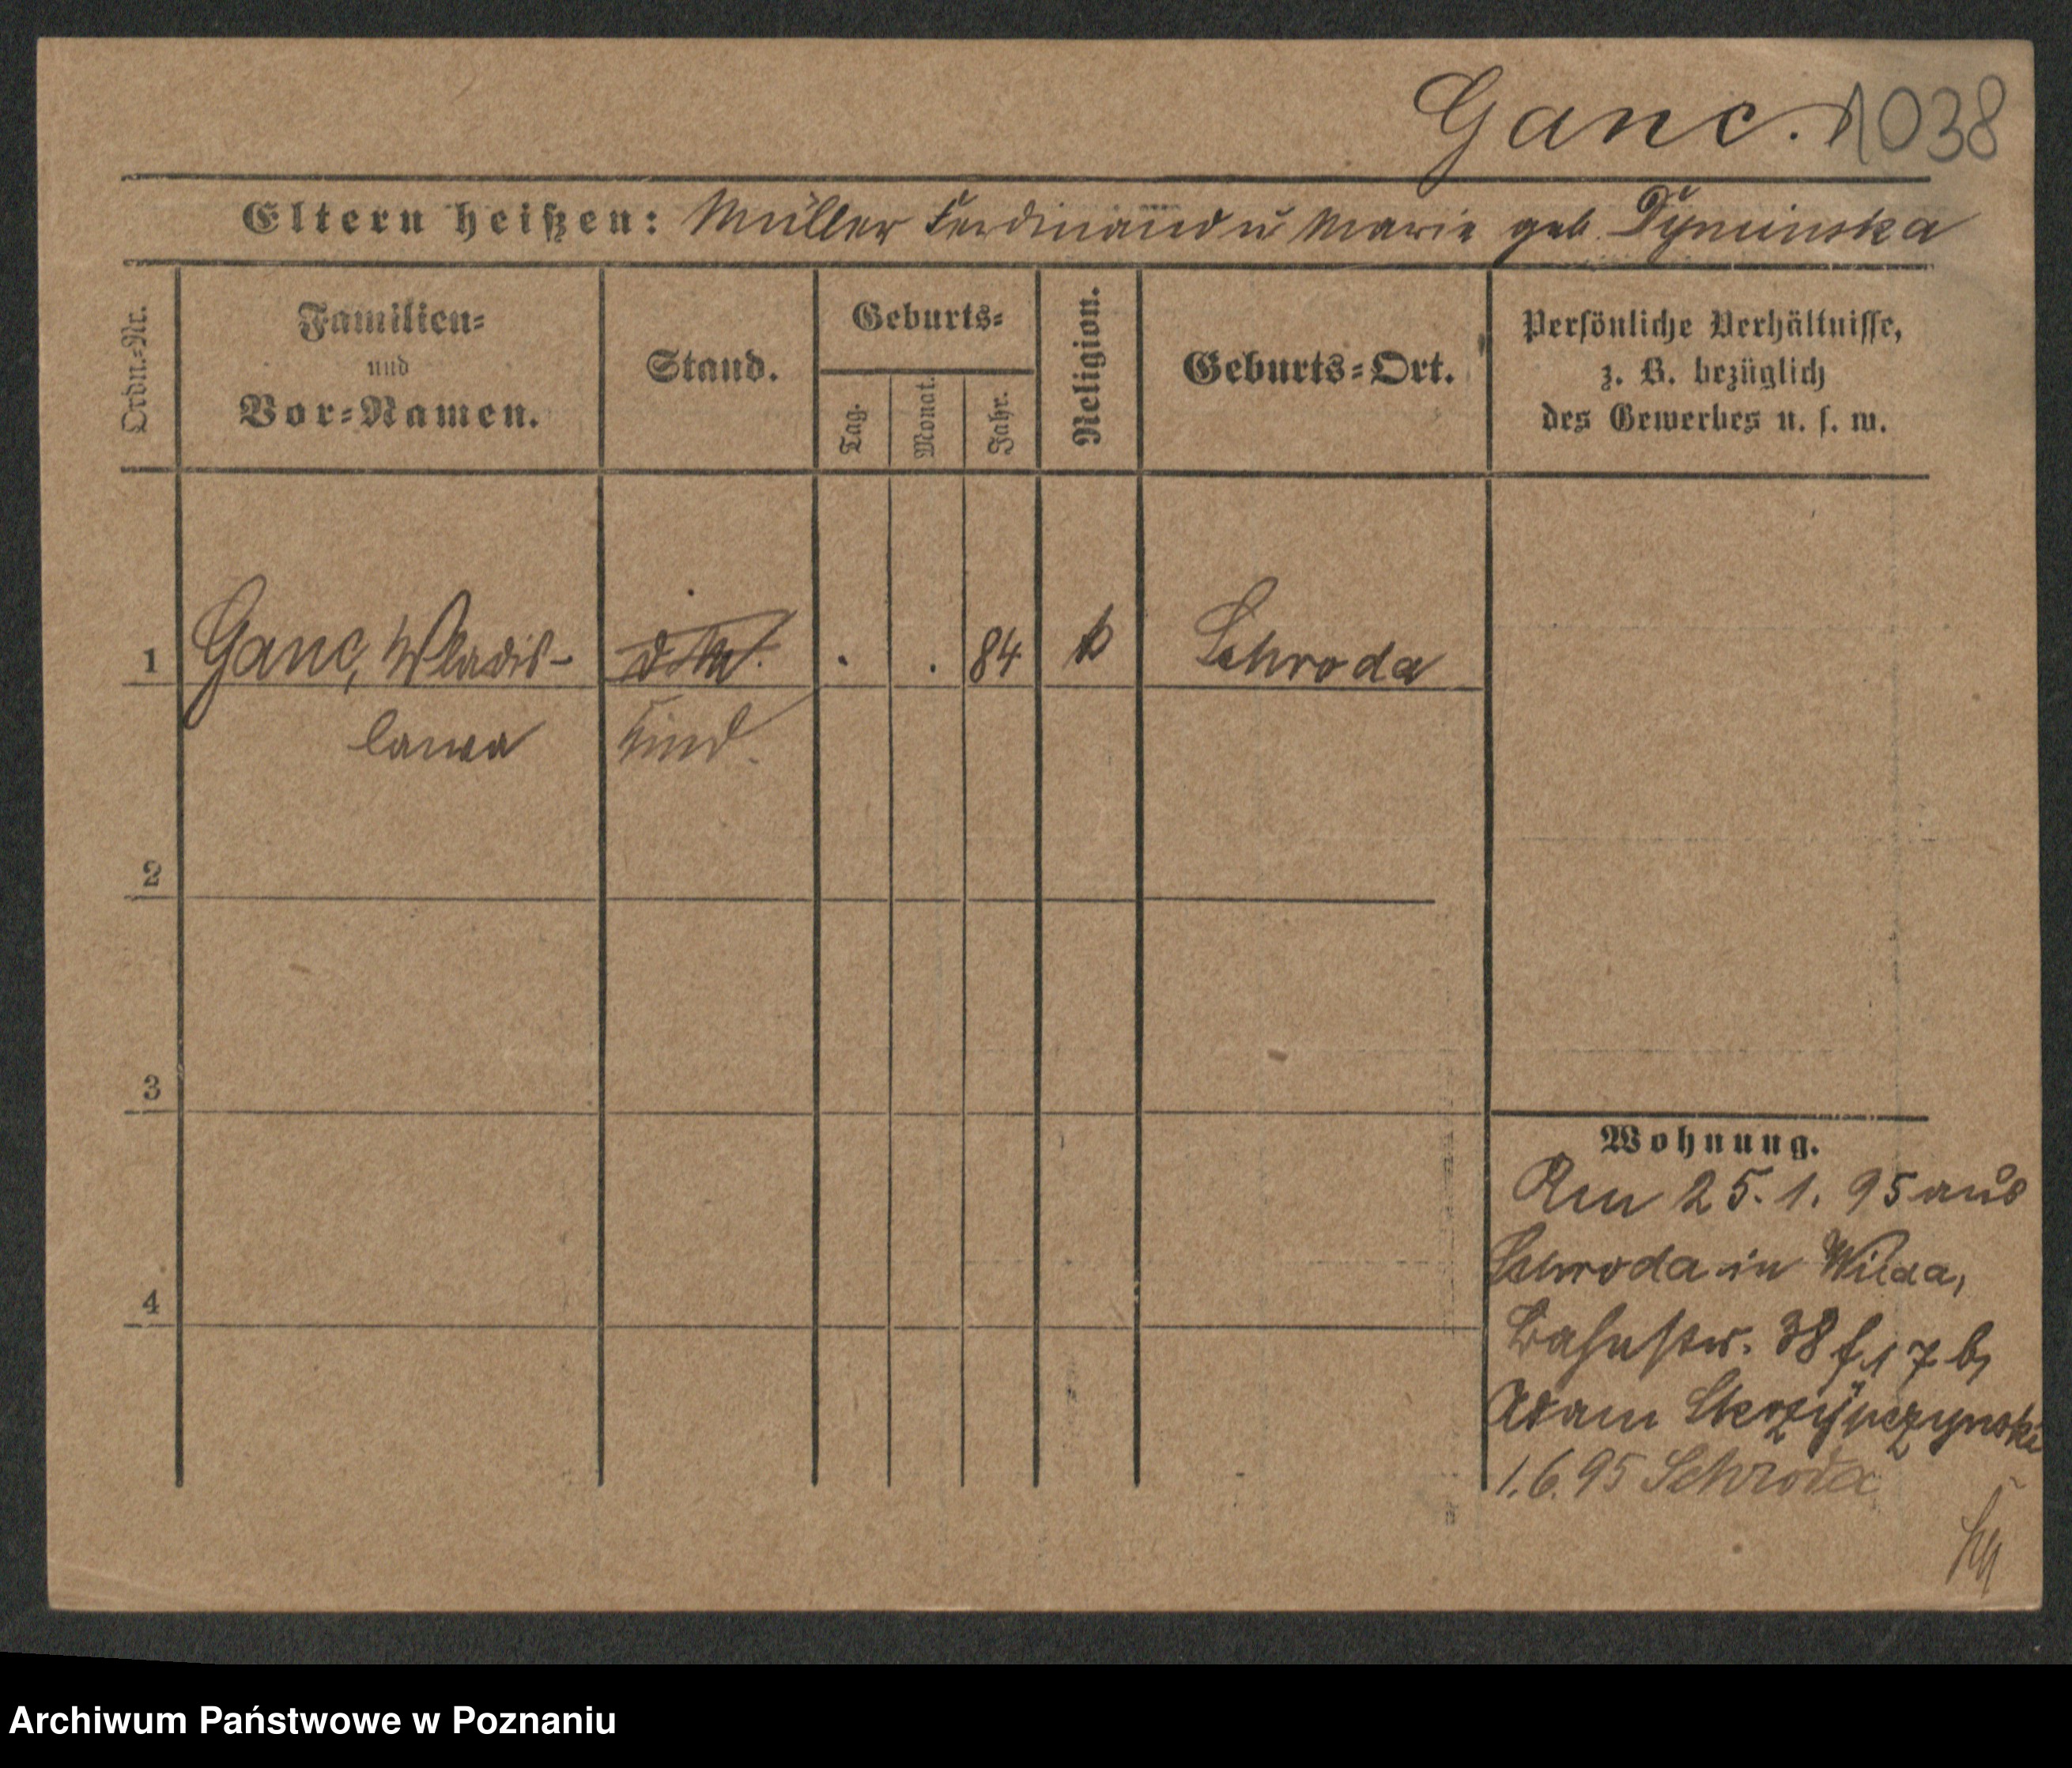 Ganc. 1038
Eltern heißen: Müller Ferdinand u Marie geb. Tyminska
Ordn.-Nr.
Familien-
und
Vor-Namen.
Stand.
Geburts-
Tag.
Monat.
Jahr.
Religion.
Geburts-Ort.
Persönliche Verhältnisse,
z. B. bezüglich
des Gewerbes u. s. w.
1 Ganc, Wladis- . . 84 k Schroda
lawa Kind.
2
3
4
Wohnung.
Am 25. 1. 95 aus
Schroda in Wilda,
Bahnstr. 38 f, 17 b,
Adam Skrzypczynski
1. 6. 95 Schroda
Archiwum Państwowe w Poznaniu